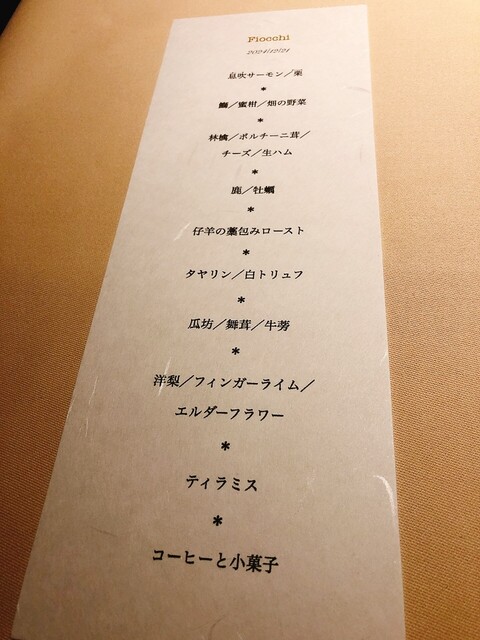 Fiocchi
2024/12/21
息吹サーモン／栗
*
鰤／蜜柑／畑の野菜
*
林檎／ポルチーニ茸／
チーズ／生ハム
*
鹿／牡蠣
*
仔羊の藁包みロースト
*
タヤリン／白トリュフ
*
瓜坊／舞茸／牛蒡
*
洋梨／フィンガーライム／
エルダーフラワー
*
ティラミス
*
コーヒーと小菓子